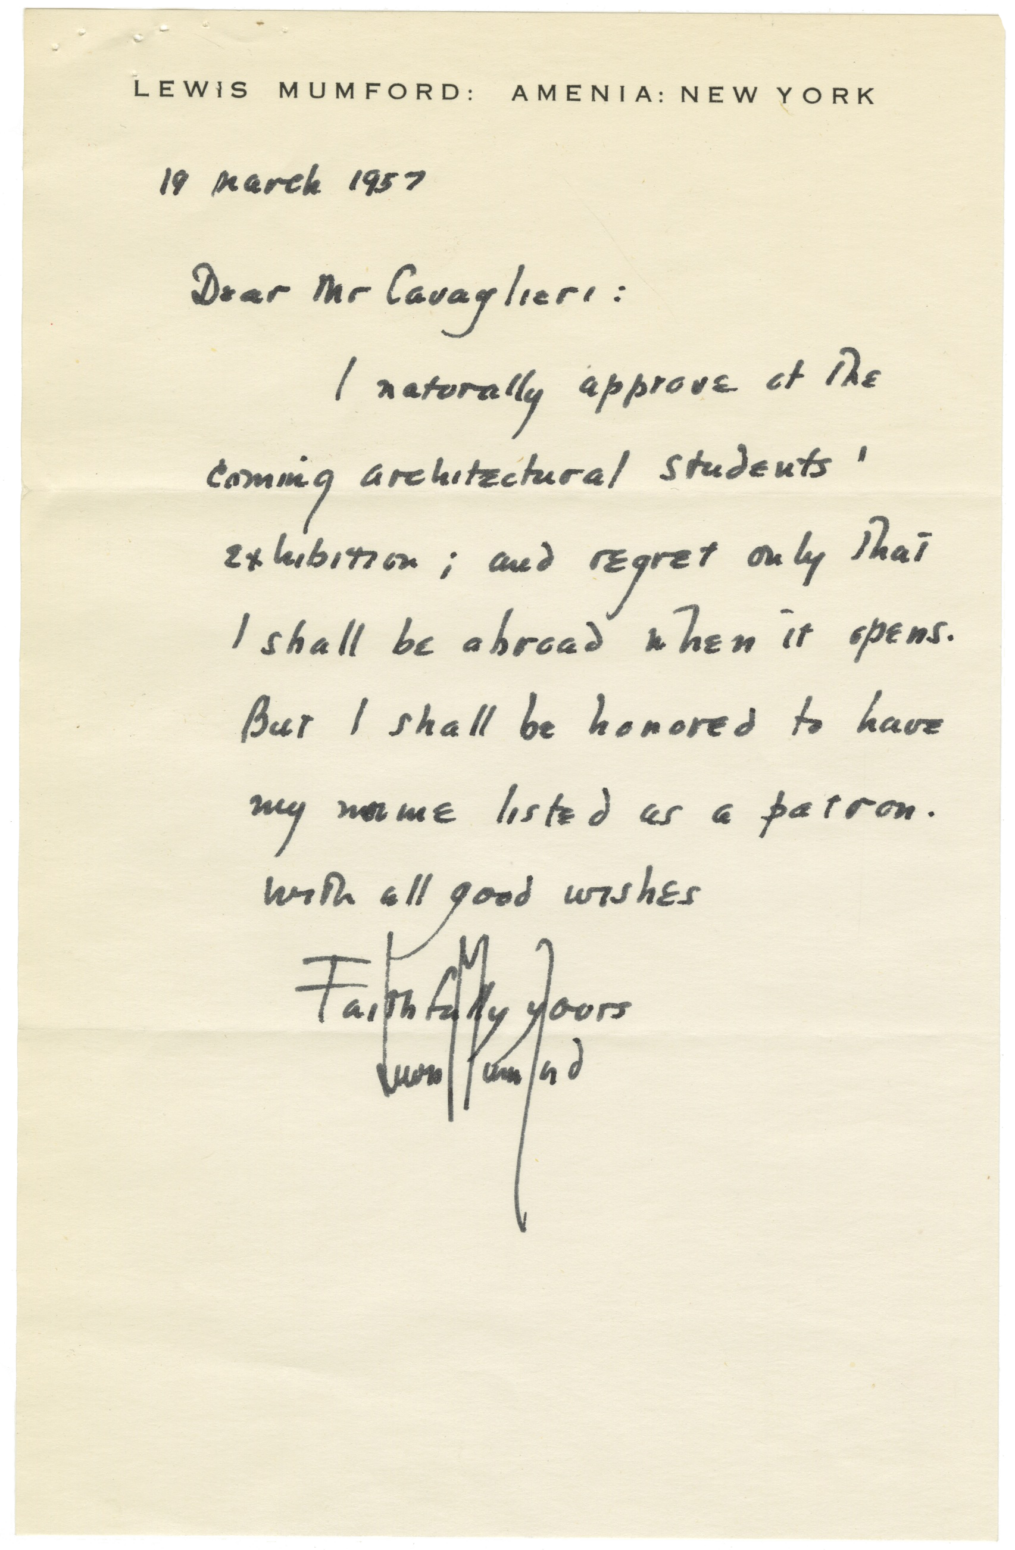 LEWIS MUMFORD: AMENIA: NEW YORK
19 March 1957
Dear Mr Cavaglieri:
I naturally approve of the
coming architectural students'
exhibition; and regret only that
I shall be abroad when it opens.
But I shall be honored to have
my name listed as a patron.
With all good wishes
Faithfully yours
Lewis Mumford